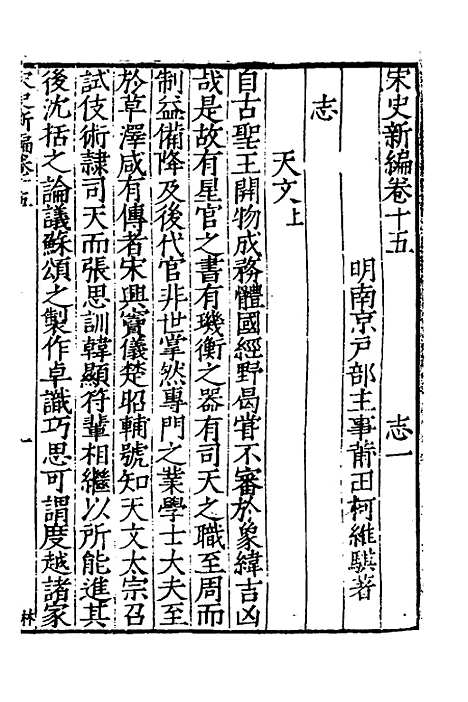 宋史新編卷十五
志一
明南京戶部主事莆田柯維騏著
志
天文上
自古聖王開物成務體國經野曷嘗不審於象緯吉凶
哉是故有星官之書有璣衡之器有司天之職至周而
制益備降及後代官非世掌然專門之業學士大夫至
於草澤咸有傳者宋興竇儀楚昭輔號知天文太宗召
試伎術隷司天而張思訓韓顯符輩相繼以所能進其
後沈括之論議蘇頌之製作卓識巧思可謂度越諸家
宋史新編卷十五
一
林